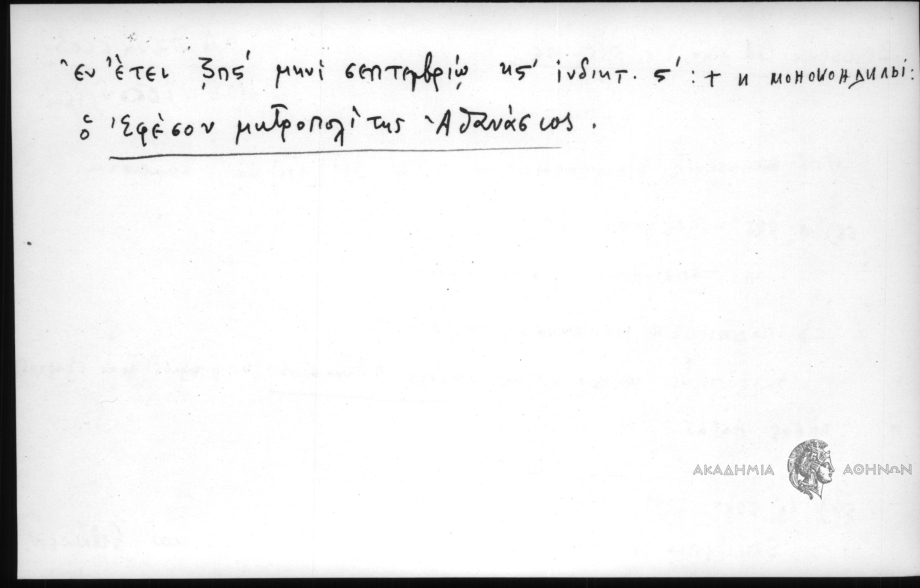 ἐν ἔτει ζπϛʹ μηνὶ σεπτεμβρίῳ κϛʹ ἰνδικτ. ϛʹ : + κ μονοκονδυλι :
ὁ Ἐφέσου μητροπολίτης Ἀθανάσιος .
ΑΚΑΔΗΜΙΑ ΑΘΗΝΩΝ